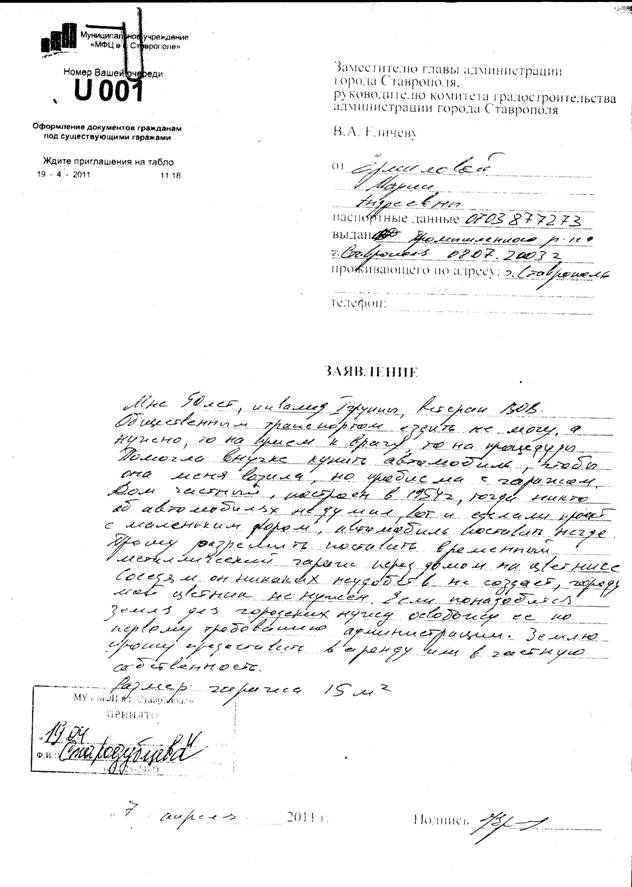 Муниципальное учреждение
«МФЦ в г. Ставрополе»
Номер Вашей очереди
U 001
Оформление документов гражданам
под существующими гаражами
Ждите приглашения на табло
19 - 4 - 2011 11:18
Заместителю главы администрации
города Ставрополя,
руководителю комитета градостроительства
администрации города Ставрополя
В.А. Еничеву
от Ермиловой
Марии
Андреевны
паспортные данные 0703 877273
выдан Промышленного р-на
г. Ставрополя 08.07.2003 г
проживающего по адресу: г. Ставрополь
телефон:
ЗАЯВЛЕНИЕ
Мне 90 лет, инвалид I группы, ветеран ВОВ.
Общественным транспортом ездить не могу, а
нужно, то на прием к врачу, то на процедуры
Помогла внучке купить автомобиль, чтобы
она меня возила, но проблема с гаражом.
Дом частный, построен в 1954 г, тогда никто
об автомобилях не думал, вот и сделали проект
с маленьким двором, автомобиль поставить негде.
Прошу разрешить поставить временный
металлический гараж перед домом на цветнике
Соседям он никаких неудобств не создает, городу
мой цветник не нужен. Если понадобится
земля для городских нужд освобожу ее по
первому требованию администрации. Землю
прошу предоставить в аренду или в частную
собственность.
Размер гаража 15 м²
МУ «МФЦ в г. Ставрополе»
ПРИНЯТО
« 19 04
Ф.И.О. Стародубцева И
« 7 апреля 2011 г.
Подпись